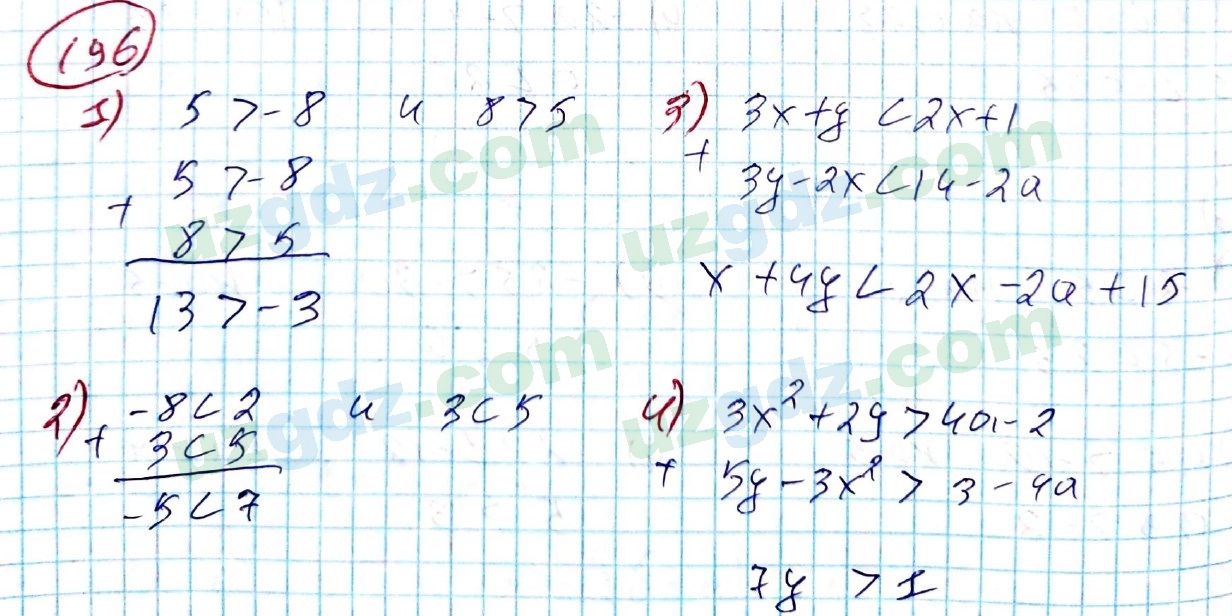 196
1) 5 > -8 и 8 > 5
+ 5 > -8
8 > 5
13 > -3
2) + -8 < 2 и 3 < 5
3 < 5
-5 < 7
3) 3x + y < 2x + 1
+ 3y - 2x < 14 - 2a
x + 4y < 2x - 2a + 15
4) 3x² + 2y > 4a - 2
+ 5y - 3x² > 3 - 4a
7y > 1
uzgdz.com
uzgdz.com
uzgdz.com
uzgdz.com